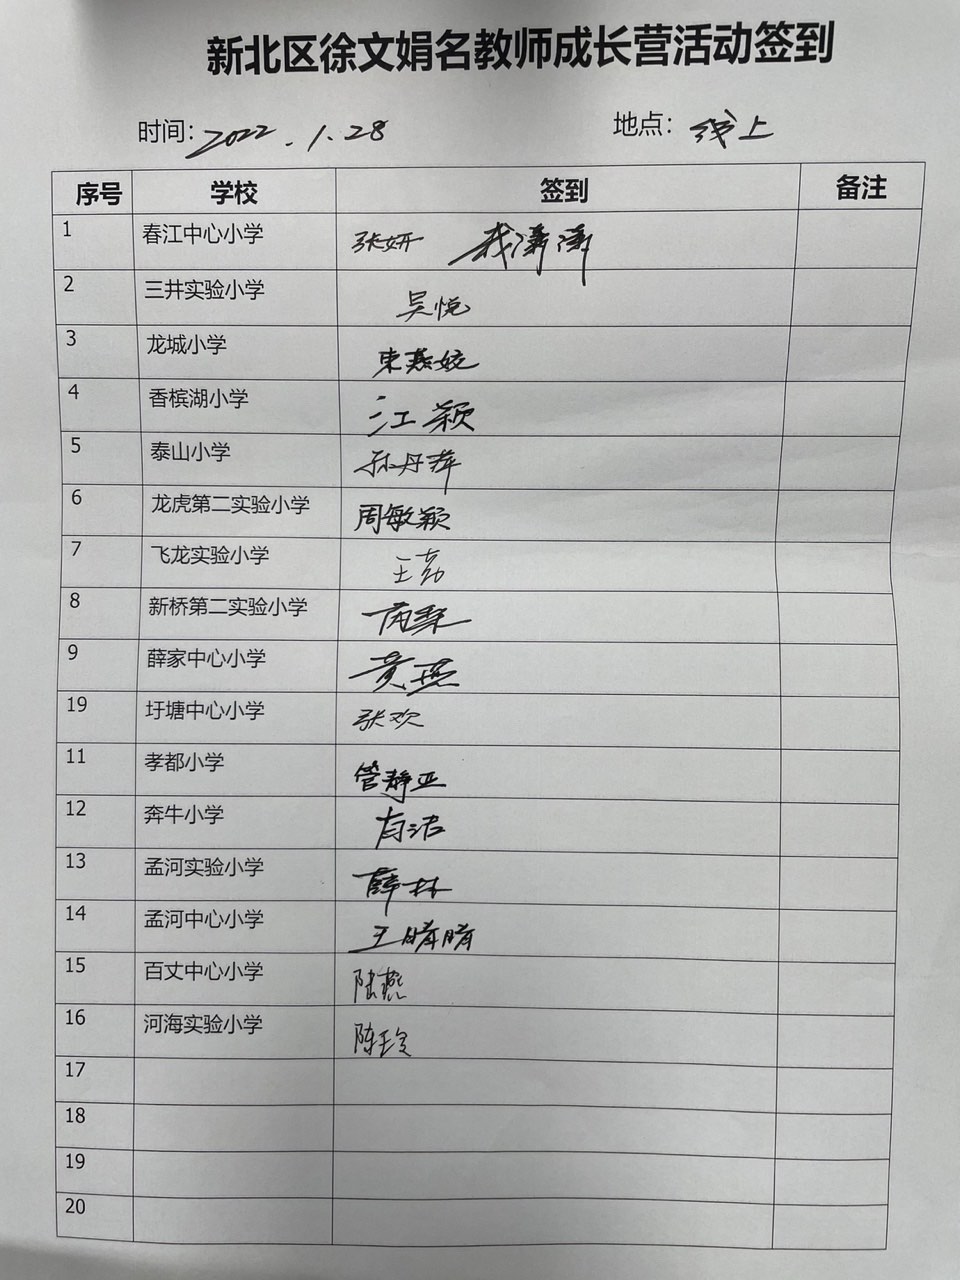 新北区徐文娟名教师成长营活动签到
时间：2022.1.28 地点：线上
序号 学校 签到 备注
1 春江中心小学 张妍
2 三井实验小学 吴悦
3 龙城小学 束燕姣
4 香槟湖小学 江颖
5 泰山小学 孙丹萍
6 龙虎第二实验小学 周敏颖
7 飞龙实验小学 王
8 新桥第二实验小学
9 薛家中心小学 黄燕
19 圩塘中心小学 张欢
11 孝都小学 管静亚
12 奔牛小学 肖洁
13 孟河实验小学 薛林
14 孟河中心小学 王晴晴
15 百丈中心小学 陆燕
16 河海实验小学 陈玲
17
18
19
20